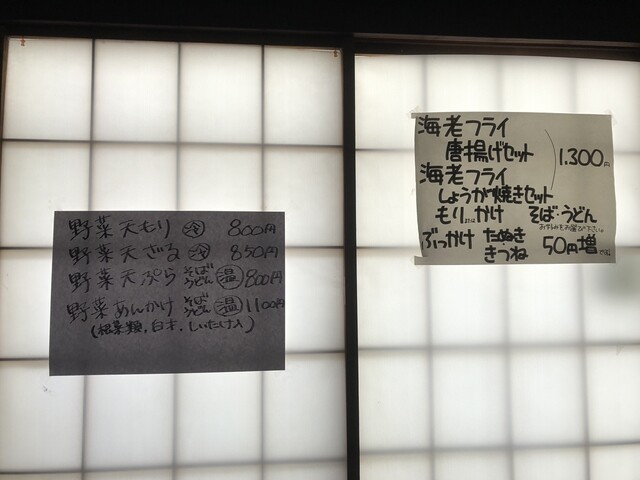 野菜天もり 冷 800円
野菜天ざる 冷 850円
野菜天ぷら そばうどん 温 800円
野菜あんかけ そばうどん 温 1100円
(根菜類,白才,しいたけ入)
海老フライ
唐揚げセット
海老フライ
しょうが焼きセット
1.300円
もりまたはかけ そば・うどん
お好みをお選び下さい。
ぶっかけ たぬき きつね 50円増